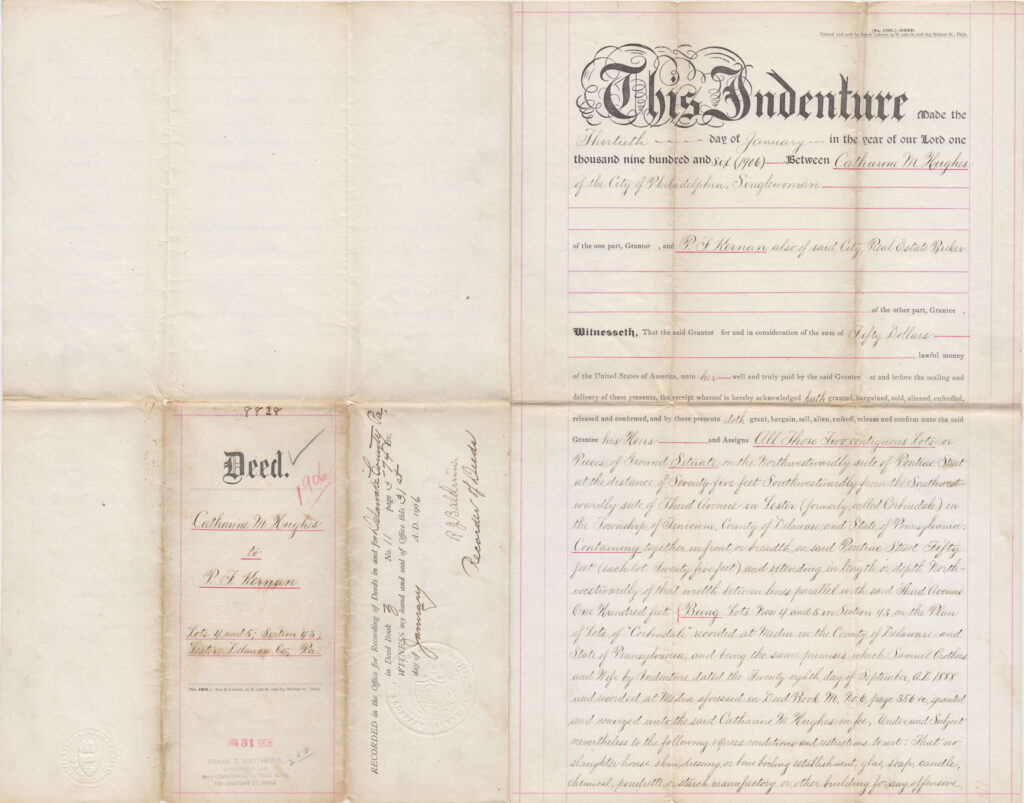 8838
Deed.
1906
Catharine M. Hughes
to
P. F. Kernan
Lots 4 and 5, Section 43,
Lester, Delaware Co., Pa.
JAN 31 1906
FRANK T. MATTHEWS
RECORDED in the Office for Recording of Deeds in and for Delaware County Pa.
in Deed Book No. 11 page &c.
WITNESS my hand and seal of Office this 31st
day of January A. D. 1906
R J Baldwin
Recorder of Deeds
[No. 1021.]—DEED.
This Indenture Made the
Thirtieth day of January in the year of our Lord one
thousand nine hundred and six (1906) Between Catharine M. Hughes
of the City of Philadelphia. Singlewoman
of the one part, Grantor , and P F Kernan, also of said City, Real Estate Broker
of the other part, Grantee ,
Witnesseth, That the said Grantor for and in consideration of the sum of Fifty Dollars
lawful money
of the United States of America, unto her well and truly paid by the said Grantee at and before the sealing and
delivery of these presents, the receipt whereof is hereby acknowledged hath granted, bargained, sold, aliened, enfeoffed,
released and confirmed, and by these presents doth grant, bargain, sell, alien, enfeoff, release and confirm unto the said
Grantee his Heirs and Assigns All Those Two contiguous Lots or
Pieces of Ground Situate on the Northwestwardly side of Pontiac Street
at the distance of Seventy five feet Southwestwardly from the Southwest-
wardly side of Third Avenue in Lester (formerly called Corbindale) in
the Township of Tinicum, County of Delaware and State of Pennsylvania.
Containing together in front or breadth on said Pontiac Street Fifty
feet (each lot Twenty five feet) and extending in length or depth North-
westwardly of that width between lines parallel with said Third Avenue
One Hundred feet (Being Lots Nos. 4 and 5 in Section 43, on the Plan
of Lots of "Corbindale" recorded at Media in the County of Delaware and
State of Pennsylvania, and being the same premises which Samuel Crothers
and Wife by Indenture dated the Twenty eighth day of September, A.D. 1888
and recorded at Media aforesaid in Deed Book M, No 6, page 356 &c, granted
and conveyed unto the said Catharine M. Hughes in fee. Under and Subject
nevertheless to the following express conditions and restrictions to wit: That no
slaughter-house, skin dressing or bone boiling establishment, glue, soap, candle,
chemical, poudrette or starch manufactory or other building for any offensive